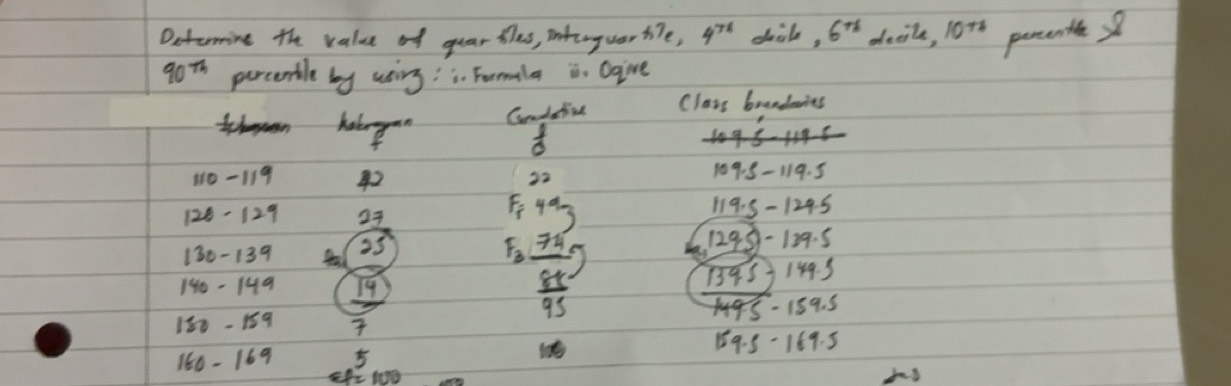 Determine the value of quartiles, interquartile, 4TH decile, 6TH decile, 10TH percentile &
90TH percentile by using: i. Formula ii. Ogive
f Cumulative f Class boundaries
109.5 - 119.5
110 - 119 22 22 109.5 - 119.5
120 - 129 27 F1 49 119.5 - 129.5
130 - 139 25 F3 74 129.5 - 139.5
140 - 149 14 88 139.5 - 149.5
150 - 159 7 95 149.5 - 159.5
160 - 169 5 100 159.5 - 169.5
Σf = 100